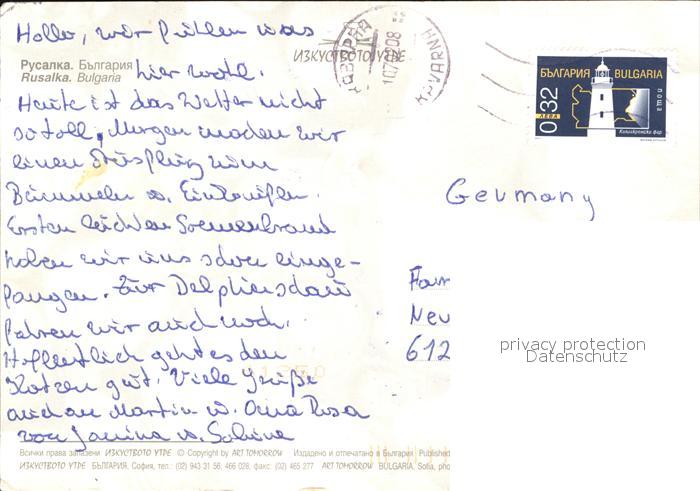 Hallo, wir fühlen uns
ИЗКУСТВОТО УТРЕ
Русалка. България
Rusalka. Bulgaria
hier wohl.
Heute ist das Wetter nicht
so toll, Morgen machen wir
einen Ausflug zum
Bummeln u. Einkaufen.
Ersten leichten Sonnenbrand
haben wir uns schon einge-
fangen. Zur Delphinschau
fahren wir auch noch.
Hoffentlich geht es den
Katzen gut. Viele Grüße
auch an Martin u. Oma Rosa
von Janina u. Sabine
KAVARN
БЪЛГАРИЯ BULGARIA
0.32
ЛЕВА
поща
Калиакренски фар
Germany
Fam
Neu
612
privacy protection
Datenschutz
Всички права запазени ИЗКУСТВОТО УТРЕ © Copyright by ART TOMORROW Издадено и отпечатано в България Published
ИЗКУСТВОТО УТРЕ БЪЛГАРИЯ, София, тел.: (02) 943 31 56; 466 028, факс: (02) 465 277 ART TOMORROW BULGARIA, Sofia, pho